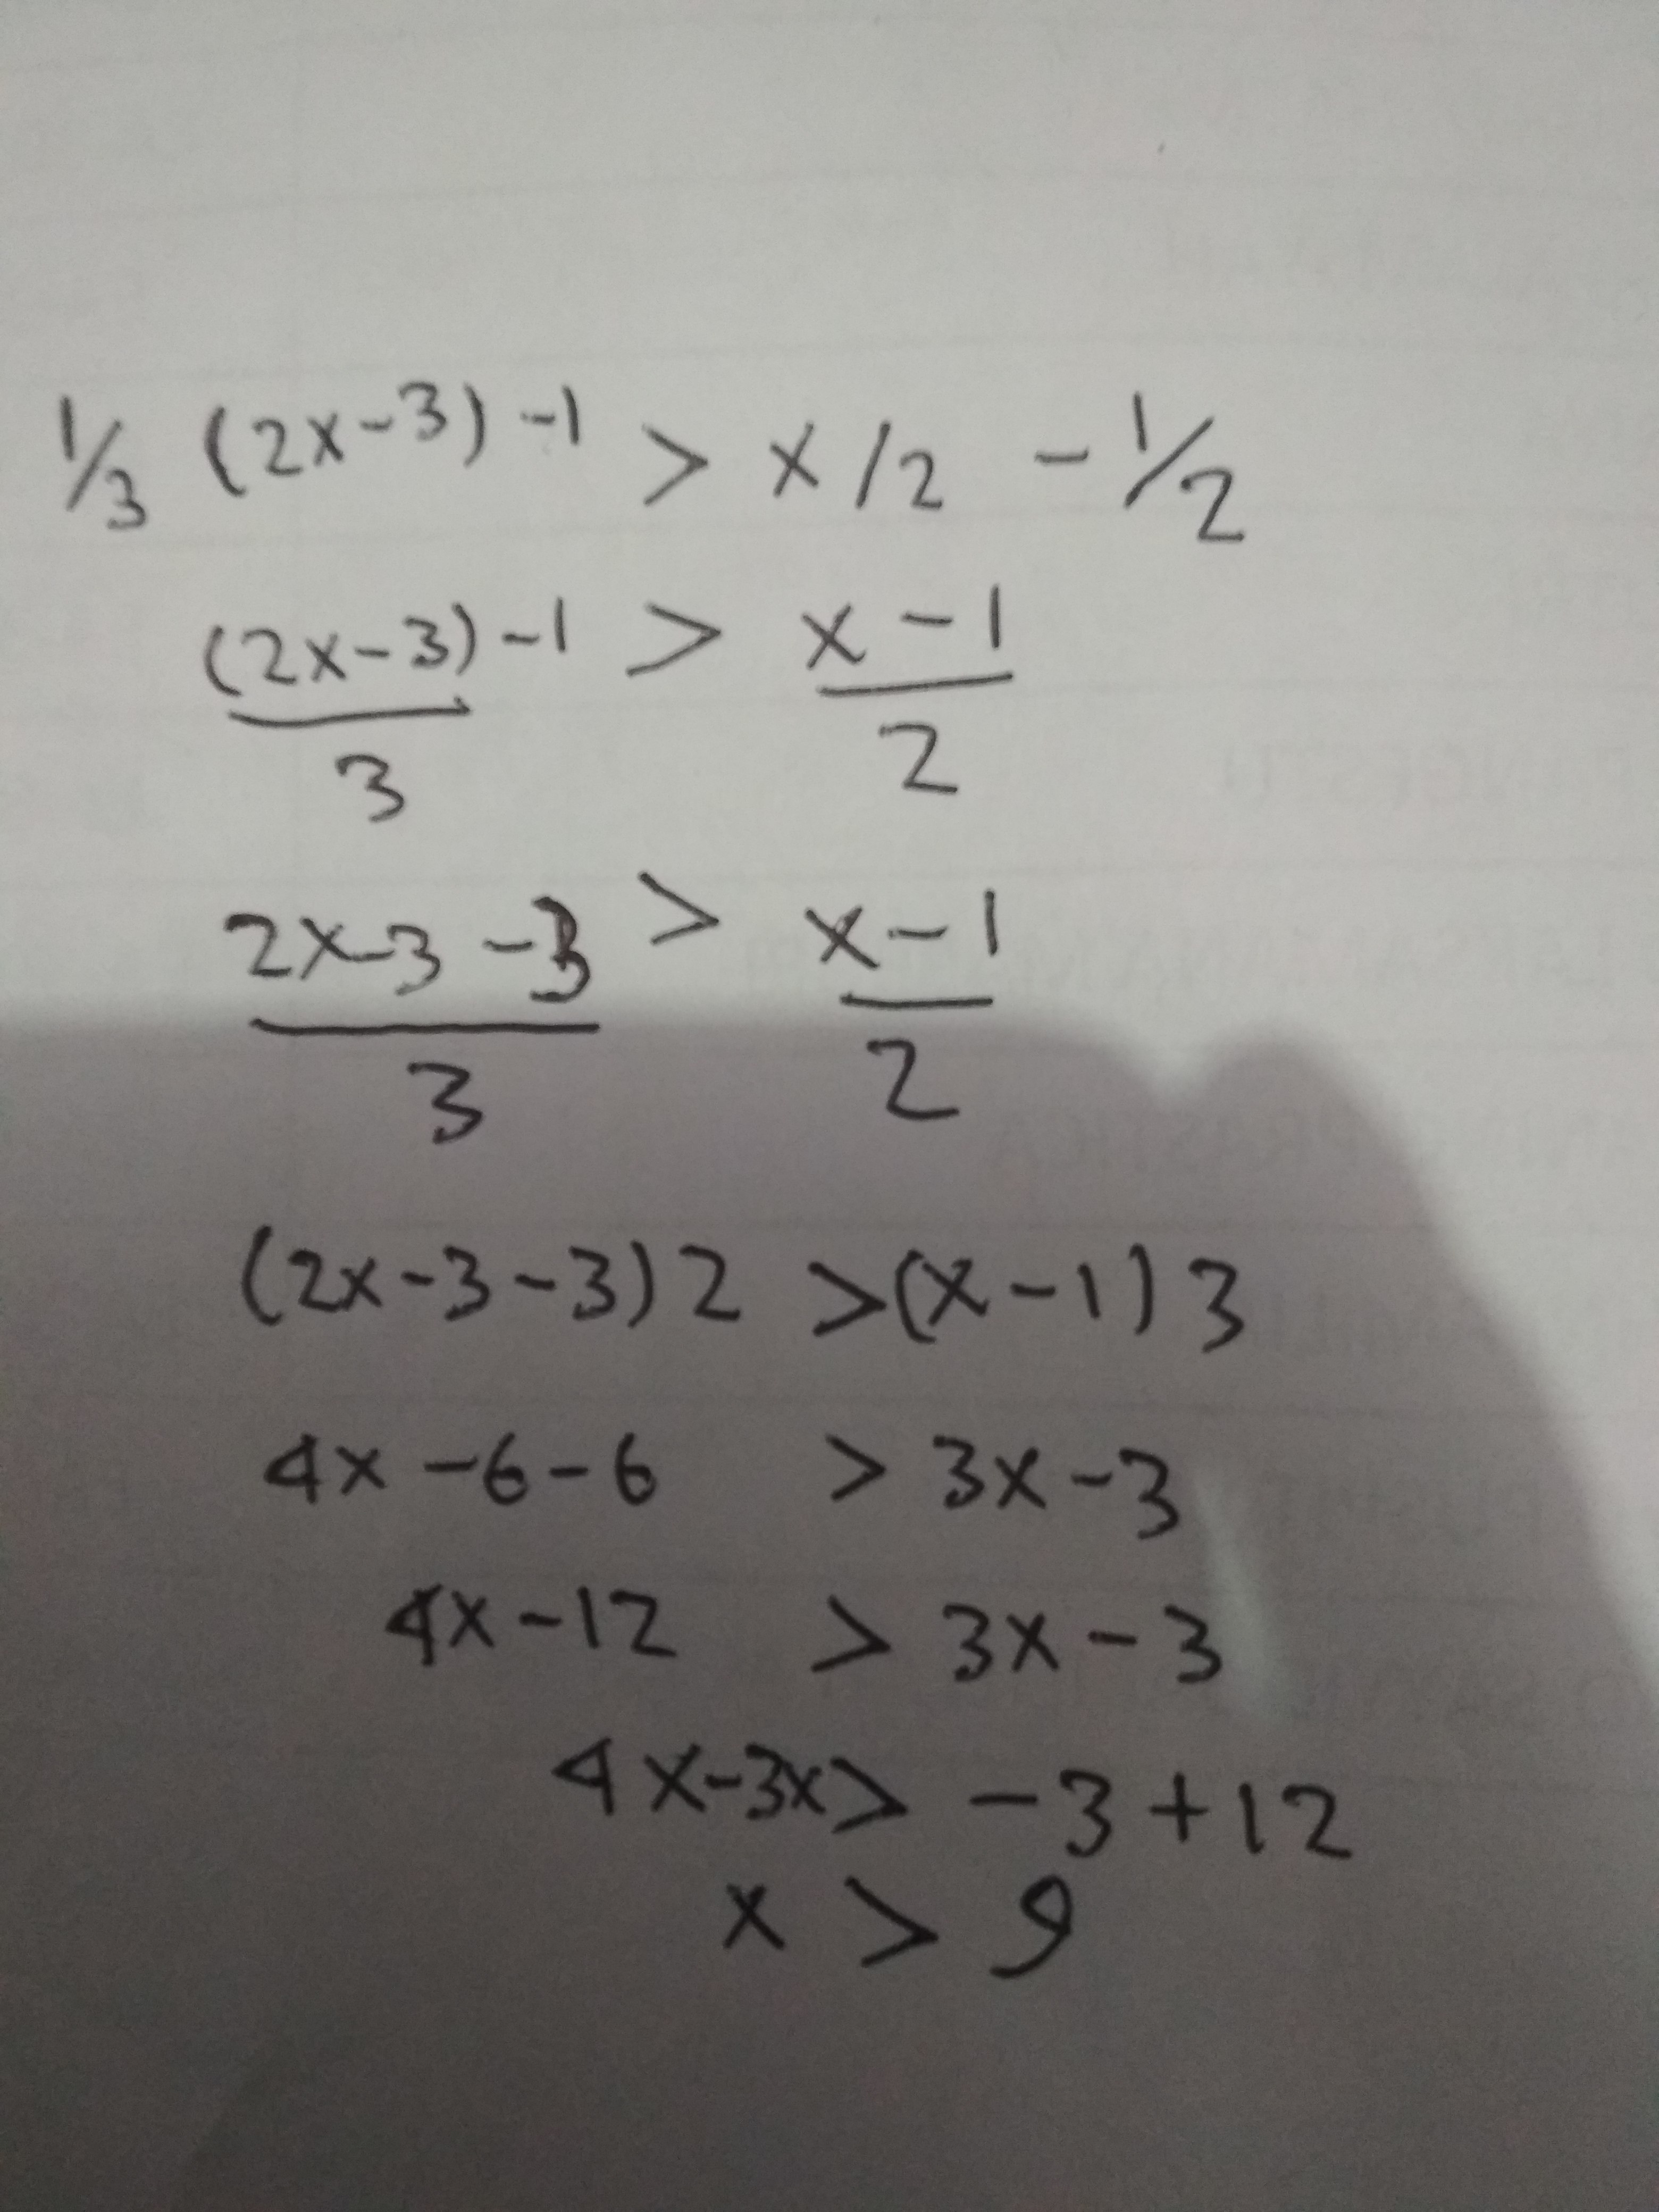 1/3 (2x-3) -1 > x/2 - 1/2
(2x-3)/3 -1 > (x-1)/2
(2x-3-3)/3 > (x-1)/2
(2x-3-3)2 >(x-1)3
4x-6-6 > 3x-3
4x-12 > 3x-3
4x-3x> -3+12
x > 9